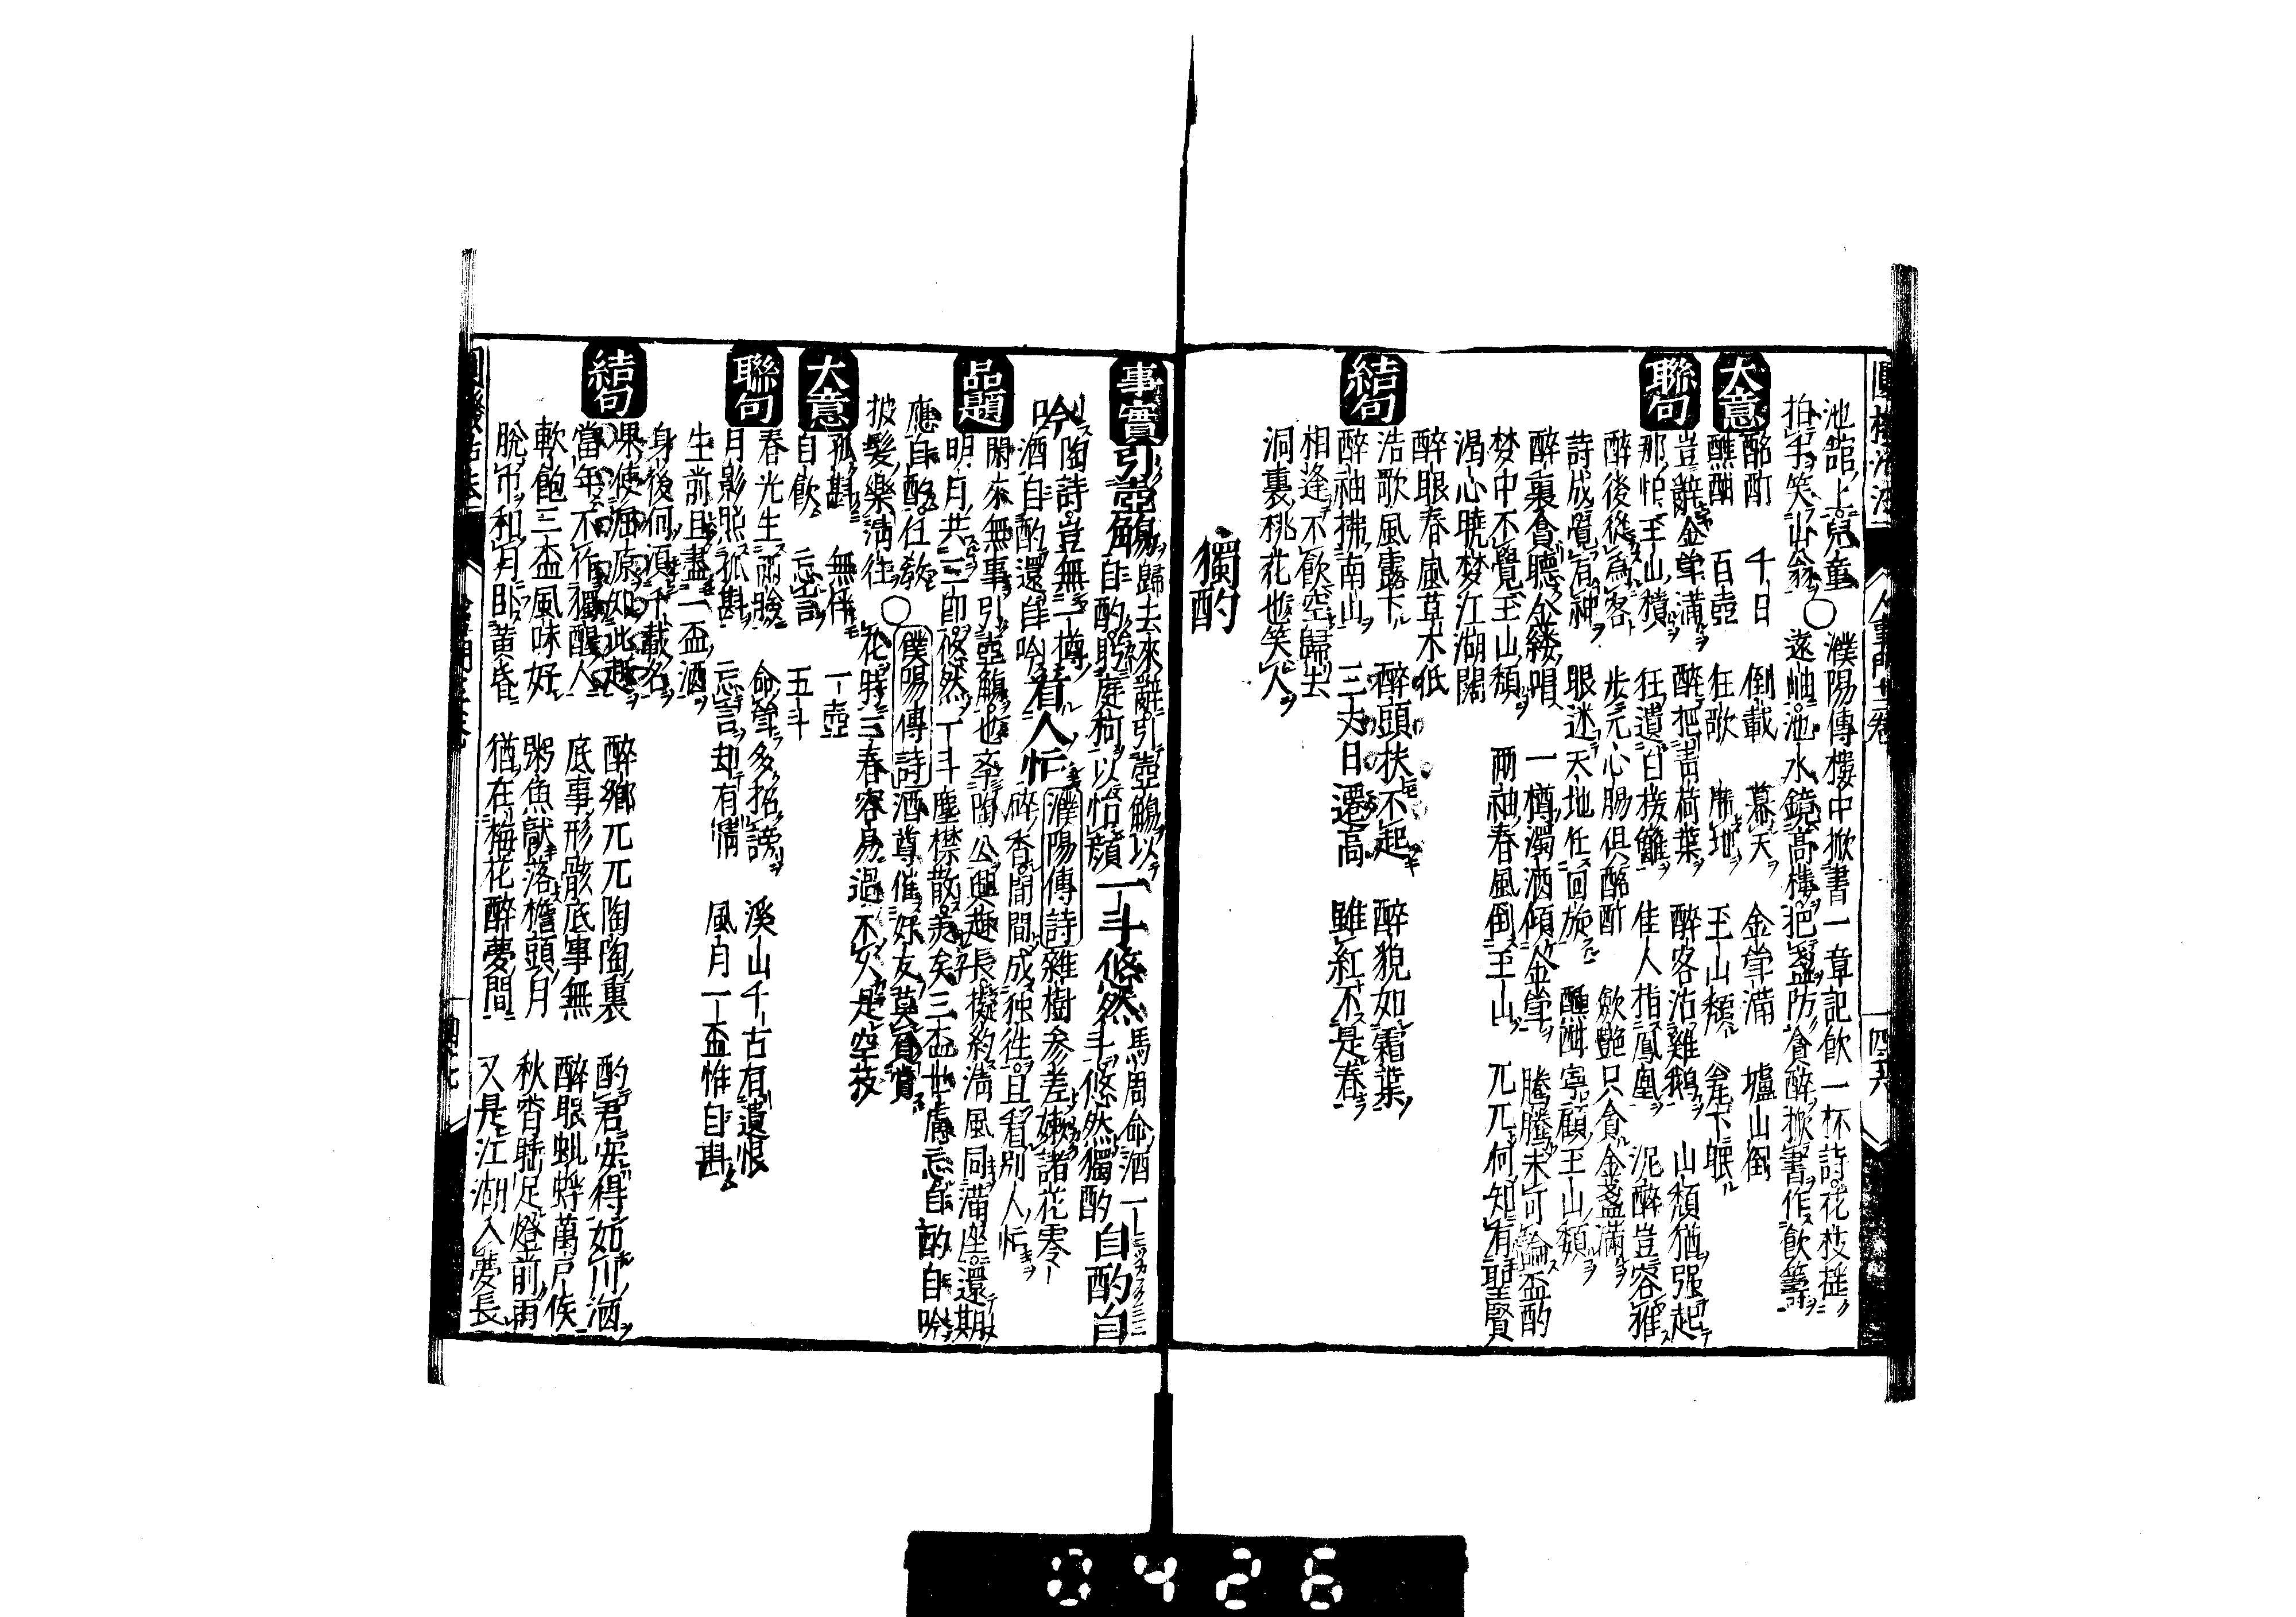 池館上兒童〇濮陽傳樓中掀書一章記飲一杯詩花枝搖
拍手笑山翁遠岫池水鏡高樓把盞防貪醉掀書作飲籌
大意
酩酊　千日　倒載　幕天　金掌滿　壚山倒
醺酣　百壺　狂歌　席地　玉山頹　瓮下眠
聯句
豈辭金掌滿　醉把青荷葉　醉客沾鸚鵡　山頹猶强起
那怕玉山積　狂遺白接䍦　佳人指鳳凰　泥醉豈容雅
醉後從為客　步元心腸俱酩酊　歛艶只貪金盞滿
詩成覺有神　眼迷天地任回旋　醺酣寧顧玉山頹
醉裏貪聽金縷唱　一樽濁酒傾金掌　騰騰未可論盃酌
梦中不覺玉山頹　两袖春風倒玉山　兀兀何知有聖賢
渴心曉梦江湖闊
醉眼春風草木低
結句
浩歌風露下　醉頭扶不起　醉貌如霜葉
醉袖拂南山　三丈日還高　雖紅不是春
相逢不飲空歸去
洞裏桃花也笑人
獨酌
事實
引壺觴歸去來辭引壺觴以自酌眄庭柯以怡顏一斗悠然馬周命酒一斗悠然獨酌自酌自
吟陶詩豈無一樽酒自酌還自吟看人忙濮陽傳詩雜樹參差嫩諸花零碎香間間成独往且看別人忙
品題
閑來無事引壺觴也斈陶公興趣長擬約清風同滿座還期
明月共三郎悠然一斗塵襟散美矣三盃世慮忘自酌自吟
應自酌任教〇僕陽傳詩酒尊催好友莫寡賞
披髮樂淸往花時三春容易過不久是空枝
大意
孤斟　無伴　一壺
自飲　忘言　五斗
聯句
春光生兩臉　命筆多招謗　溪山千古有遺恨
月影照孤斟　忘言却有情　風月一盃惟自斟
生前且盡一盃酒
身後何須千載名
結句
果使屈原知此趣　醉鄉兀兀陶陶裏　酌君安得如川酒
當年不作獨醒人　底事形骸底事無　醉眼虱蜉萬戶侯
軟飽三盃風味好　粥魚獻落檐頭月　秋宵睡足燈前雨
脫巾和月卧黃昏　猶在梅花醉夢間　又是江湖入夢長
0426